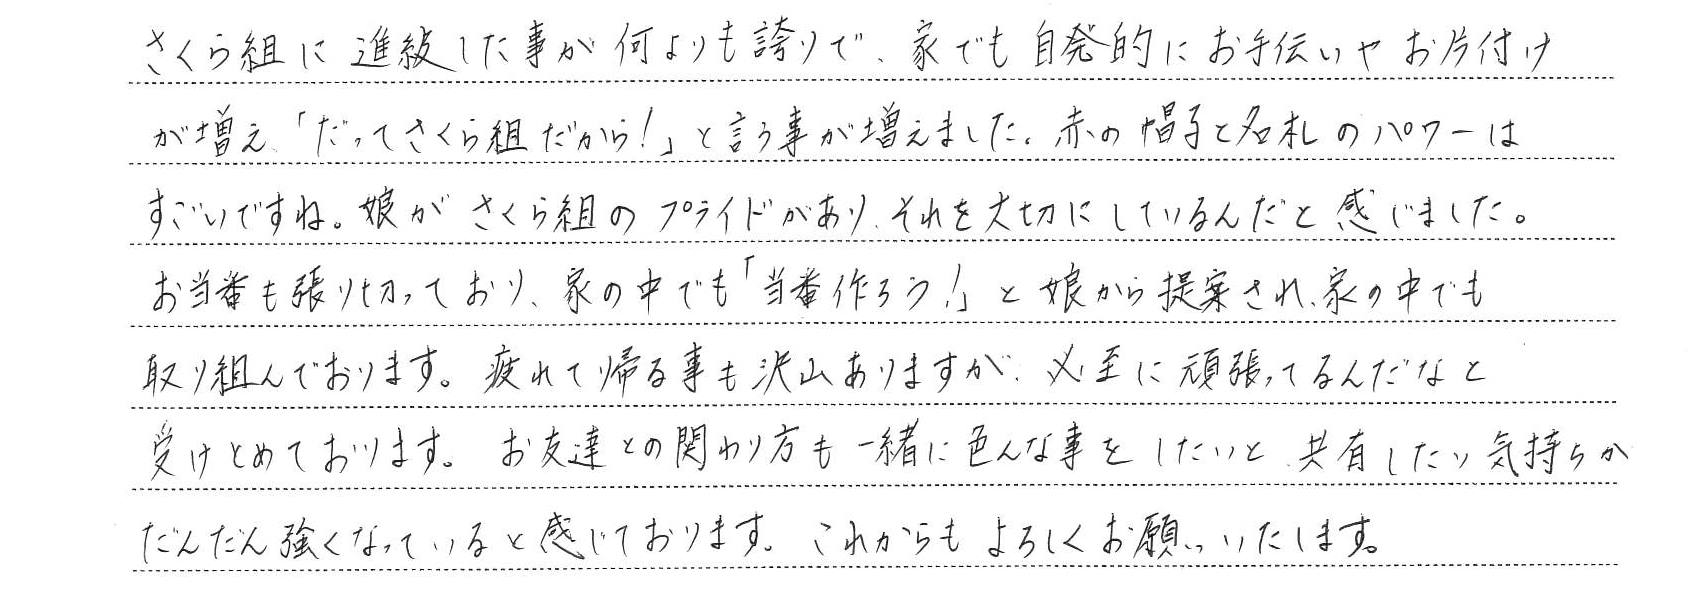 さくら組に進級した事が何よりも誇りで、家でも自発的にお手伝いやお片付け
が増え、「だってさくら組だから！」と言う事が増えました。赤の帽子と名札のパワーは
すごいですね。娘がさくら組のプライドがあり、それを大切にしているんだと感じました。
お当番も張り切っており、家の中でも「当番作ろう！」と娘から提案され、家の中でも
取り組んでおります。疲れて帰る事も沢山ありますが、必至に頑張ってるんだなと
受けとめております。お友達との関わり方も一緒に色んな事をしたいと、共有したい気持ちが
だんだん強くなっていると感じております。これからもよろしくお願いいたします。